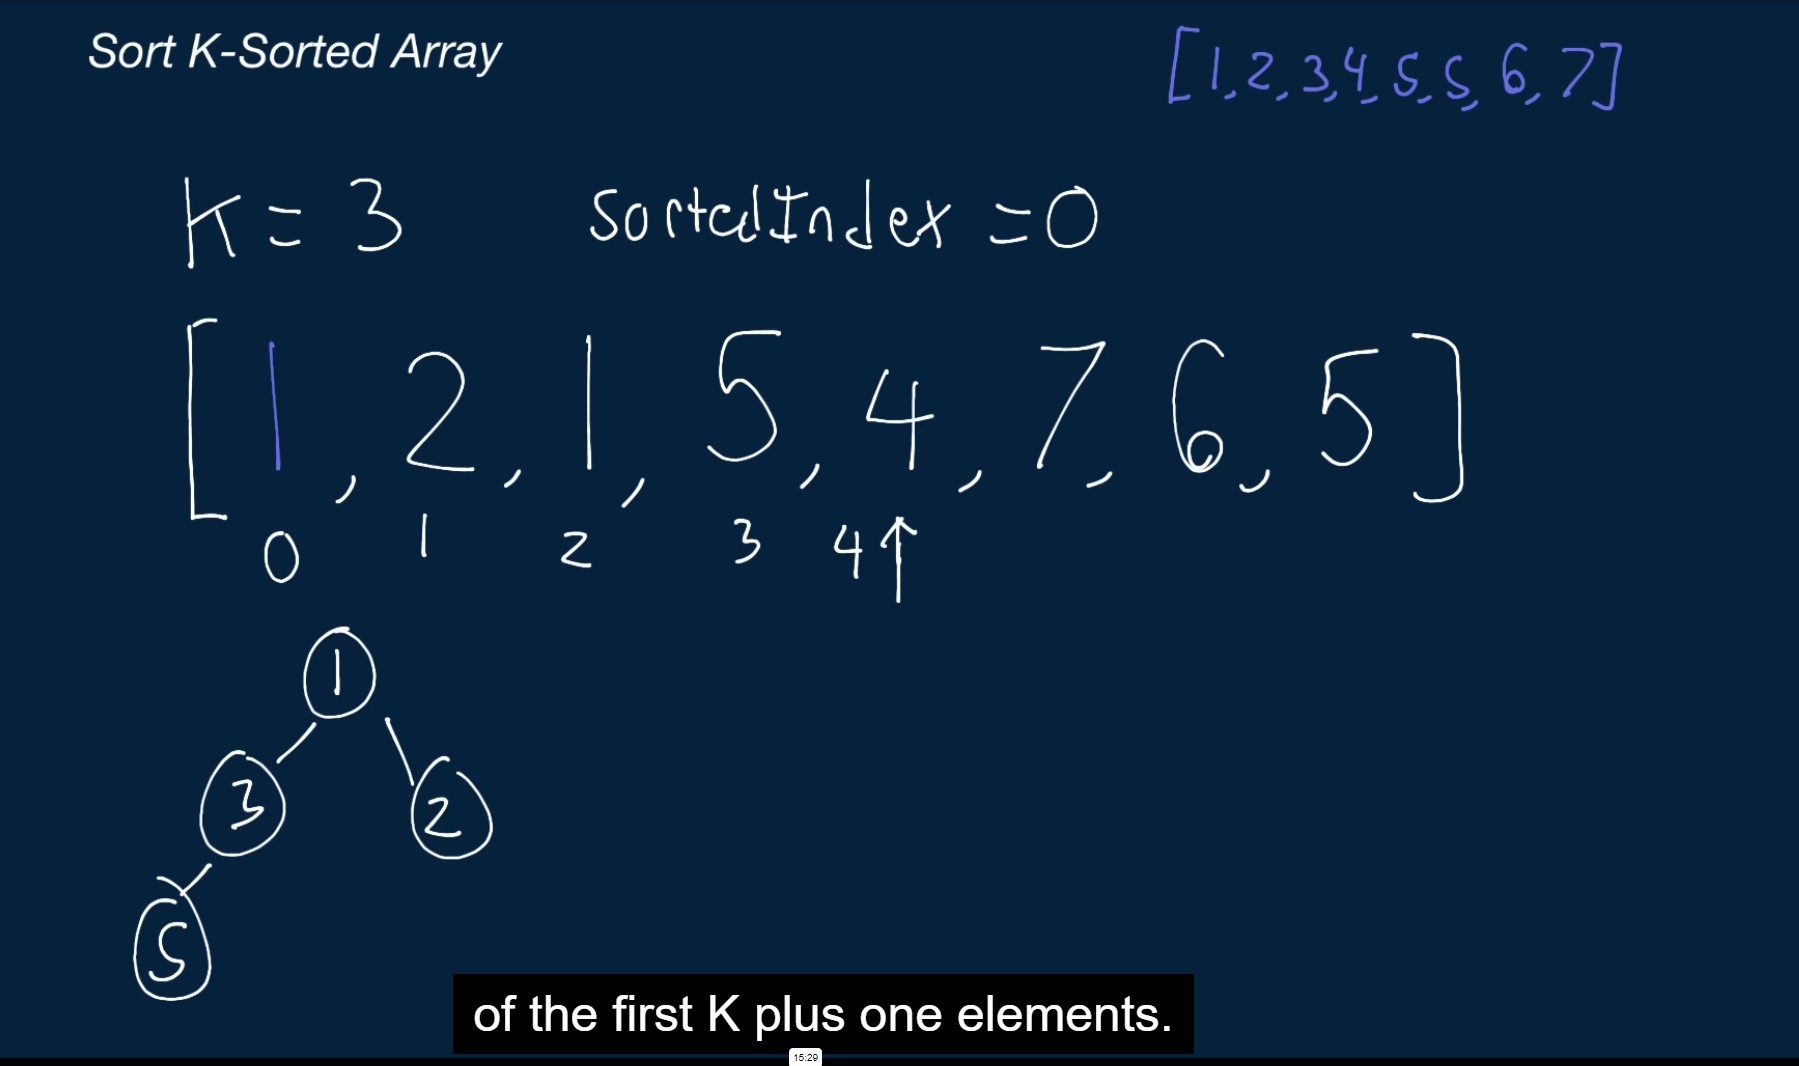 Sort K-Sorted Array
[1,2,3,4,5,5,6,7]
K=3 sortedIndex=0
[1,2,1,5,4,7,6,5]
0 1 2 3 4↑
1
3 2
5
of the first K plus one elements.
15:29